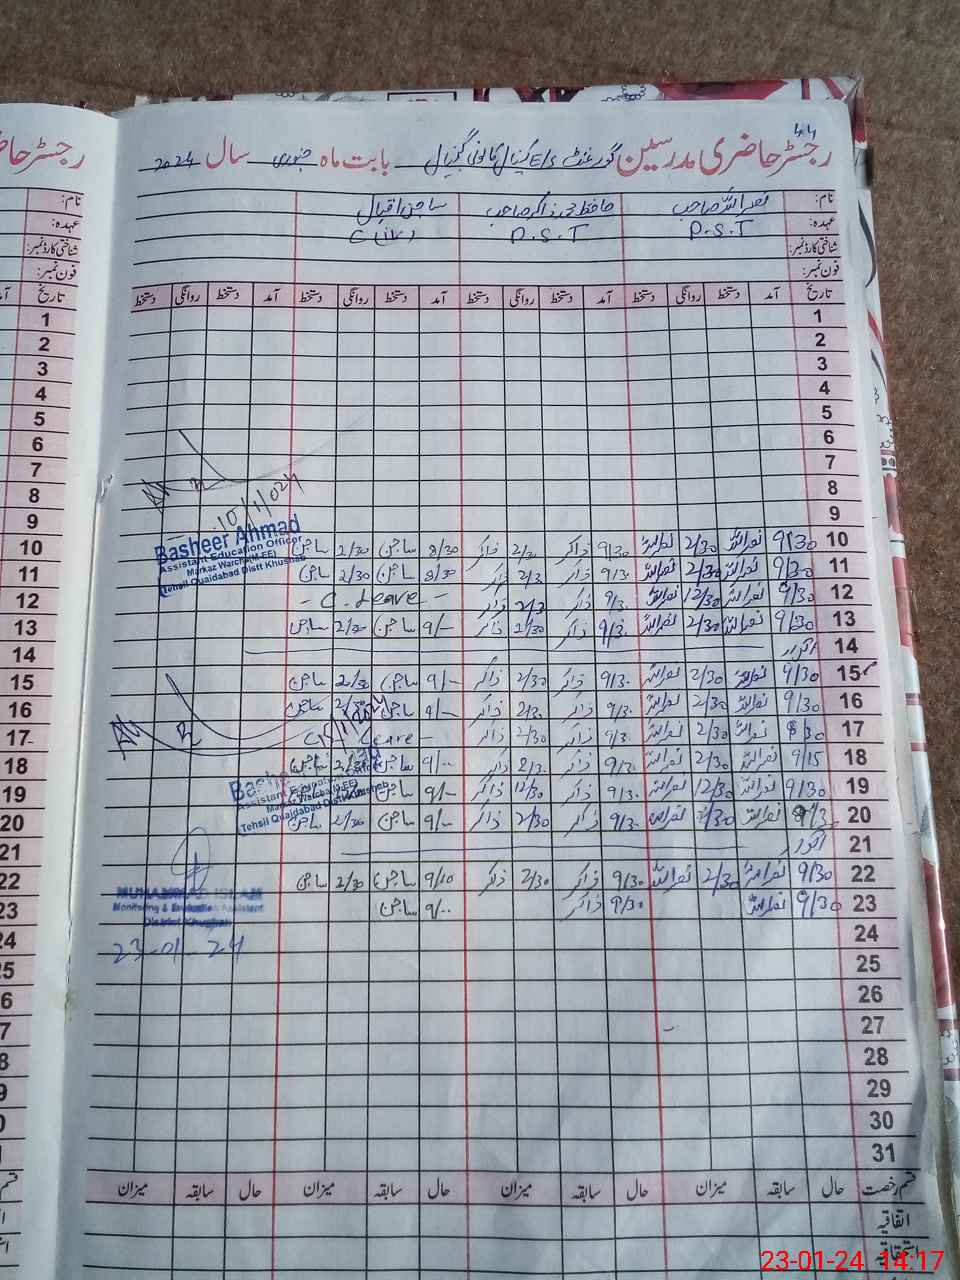 ۴۴
رجسٹر حاضری مدرسین گورنمنٹ E/S بابت ماہ جنوری سال 2024
نام: نصراللہ صاحب حافظ محمد ذاکر صاحب ساجن اقبال
عہدہ: P.S.T P.S.T C(IV)
شناختی کارڈ نمبر:
فون نمبر:
تاریخ آمد دستخط روانگی دستخط آمد دستخط روانگی دستخط آمد دستخط روانگی دستخط آمد دستخط روانگی دستخط
1
2
3
4
5
6
7
8
9
10/1/024
Basheer Ahmad
Assistant Education Officer
Markaz Warcha(M.EE)
Tehsil Quaidabad Distt Khushab
10 9/30 نصراللہ 2/30 نصراللہ 9/30 ذاکر 2/30 ذاکر 8/30 ساجن 2/30 ساجن
11 9/30 نصراللہ 2/30 نصراللہ 9/3. ذاکر 2/3. ذاکر 8/30 ساجن 2/30 ساجن
12 9/30 نصراللہ 12/30 نصراللہ 9/3. ذاکر 2/3 ذاکر - C. Leave -
13 9/30 نصراللہ 2/30 نصراللہ 9/3. ذاکر 2/30 ذاکر 9/- ساجن 2/30 ساجن
14 اتوار
15 9/30 نصراللہ 2/30 نصراللہ 9/3. ذاکر 2/30 ذاکر 9/.. ساجن 2/30 ساجن
16 9/30 نصراللہ 2/30 نصراللہ 9/3. ذاکر 2/3. ذاکر 9/- ساجن ساجن
17 8/30 نصراللہ 2/30 نصراللہ 9/3. ذاکر 2/30 ذاکر Leave -
18 9/15 نصراللہ 2/30 نصراللہ 9/3. ذاکر 2/3. ذاکر 9/.. ساجن
Assistant Education Officer
Tehsil Quaidabad Distt Khushab
19 9/30 نصراللہ 12/30 نصراللہ 9/3. ذاکر 12/30 ذاکر 9/- ساجن
20 9/3. نصراللہ 2/30 نصراللہ 9/3. ذاکر 2/30 ذاکر 9/- ساجن 2/30 ساجن
21 اتوار
22 9/30 نصراللہ 2/30 نصراللہ 9/30 ذاکر 2/30 ذاکر 9/10 ساجن 2/30 ساجن
23 9/30 نصراللہ 9/30 ذاکر 9/.. ساجن
MUHAMMAD ISLAM
Monitoring & Evaluation Assistant
District Khushab
23-01-24
24
25
26
27
28
29
30
31
قسم رخصت حال سابقہ میزان حال سابقہ میزان حال سابقہ میزان حال سابقہ میزان
اتفاقیہ
استحقاقیہ
23-01-24 14:17